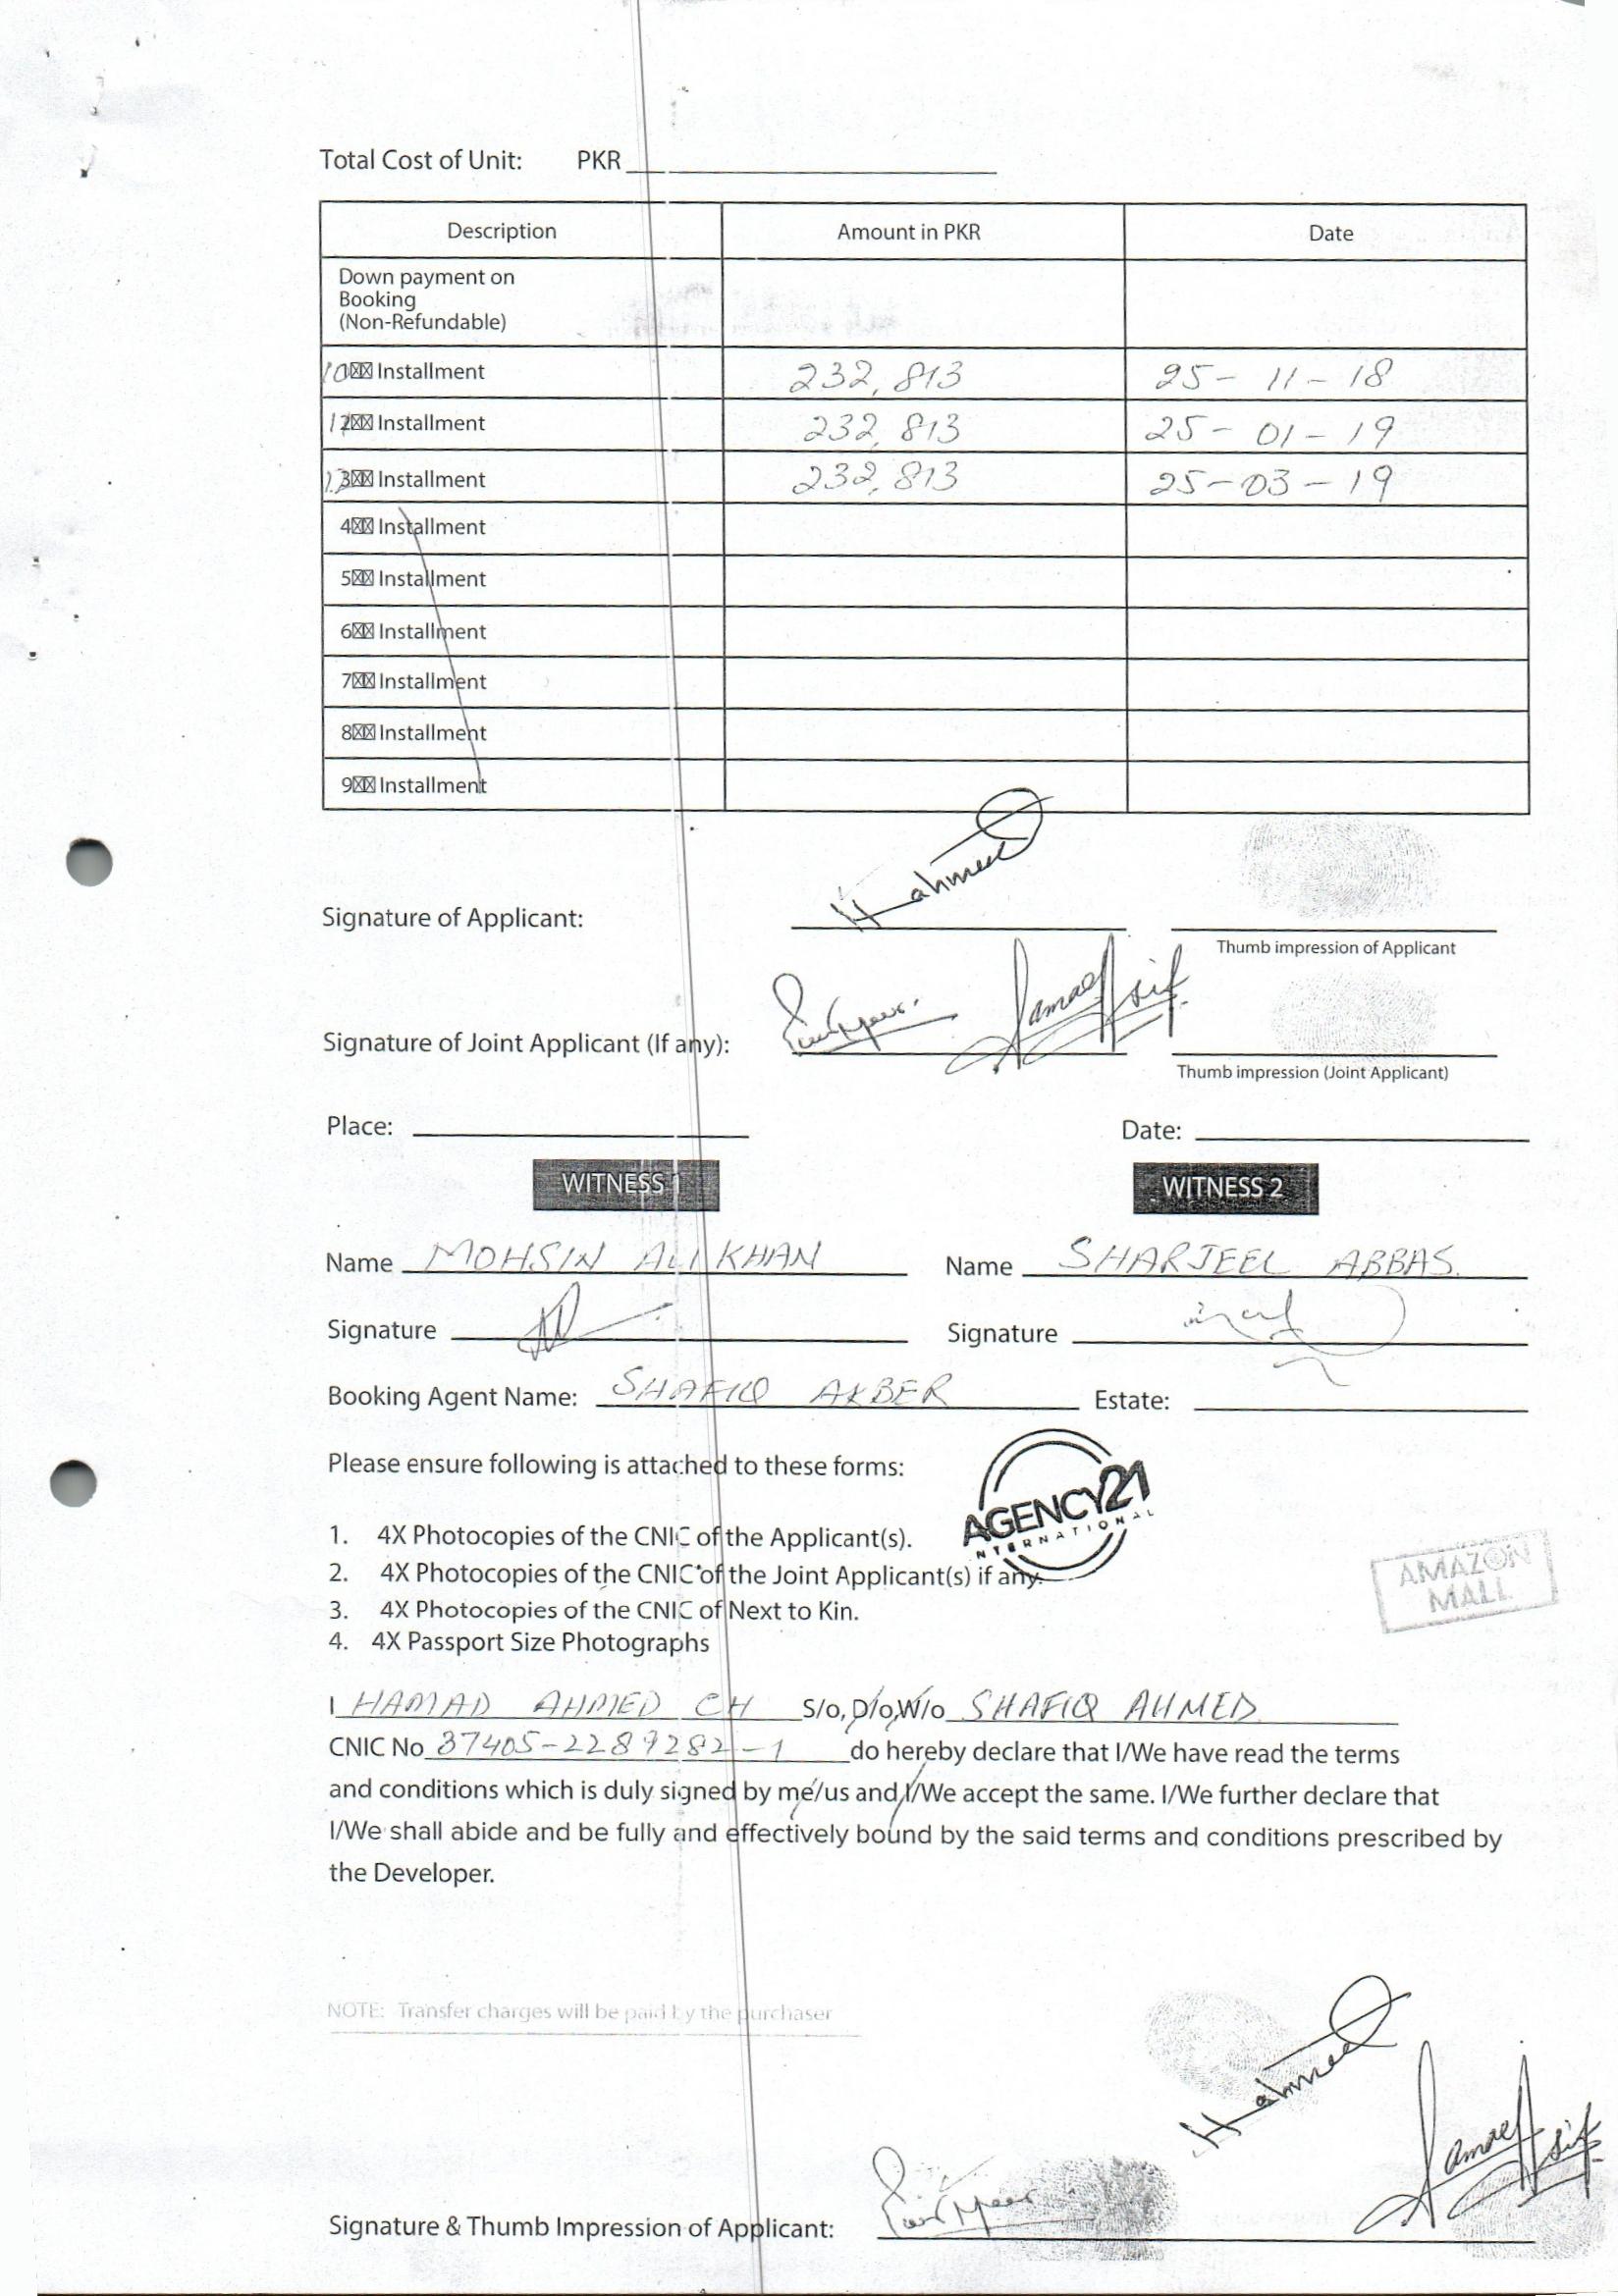 Total Cost of Unit: PKR
Description Amount in PKR Date
Down payment on
Booking
(Non-Refundable)
10 Installment 232,813 25-11-18
11 Installment 232,813 25-01-19
12 Installment 232,813 25-03-19
4 Installment
5 Installment
6 Installment
7 Installment
8 Installment
9 Installment
Hahmed
Signature of Applicant:
Thumb impression of Applicant
Signature of Joint Applicant (If any):
Thumb impression (Joint Applicant)
Place: Date:
WITNESS 1 WITNESS 2
Name MOHSIN ALI KHAN Name SHARJEEL ABBAS.
Signature Signature
Booking Agent Name: SHAFIQ AKBER Estate:
Please ensure following is attached to these forms:
AGENCY21
INTERNATIONAL
1. 4X Photocopies of the CNIC of the Applicant(s).
2. 4X Photocopies of the CNIC of the Joint Applicant(s) if any.
3. 4X Photocopies of the CNIC of Next to Kin.
4. 4X Passport Size Photographs
AMAZON
MALL
I HAMAD AHMED CH S/o, D/o, W/o SHAFIQ AHMED
CNIC No 37405-2289282-1 do hereby declare that I/We have read the terms
and conditions which is duly signed by me/us and I/We accept the same. I/We further declare that
I/We shall abide and be fully and effectively bound by the said terms and conditions prescribed by
the Developer.
NOTE: Transfer charges will be paid by the purchaser
Hahmed
Signature & Thumb Impression of Applicant: